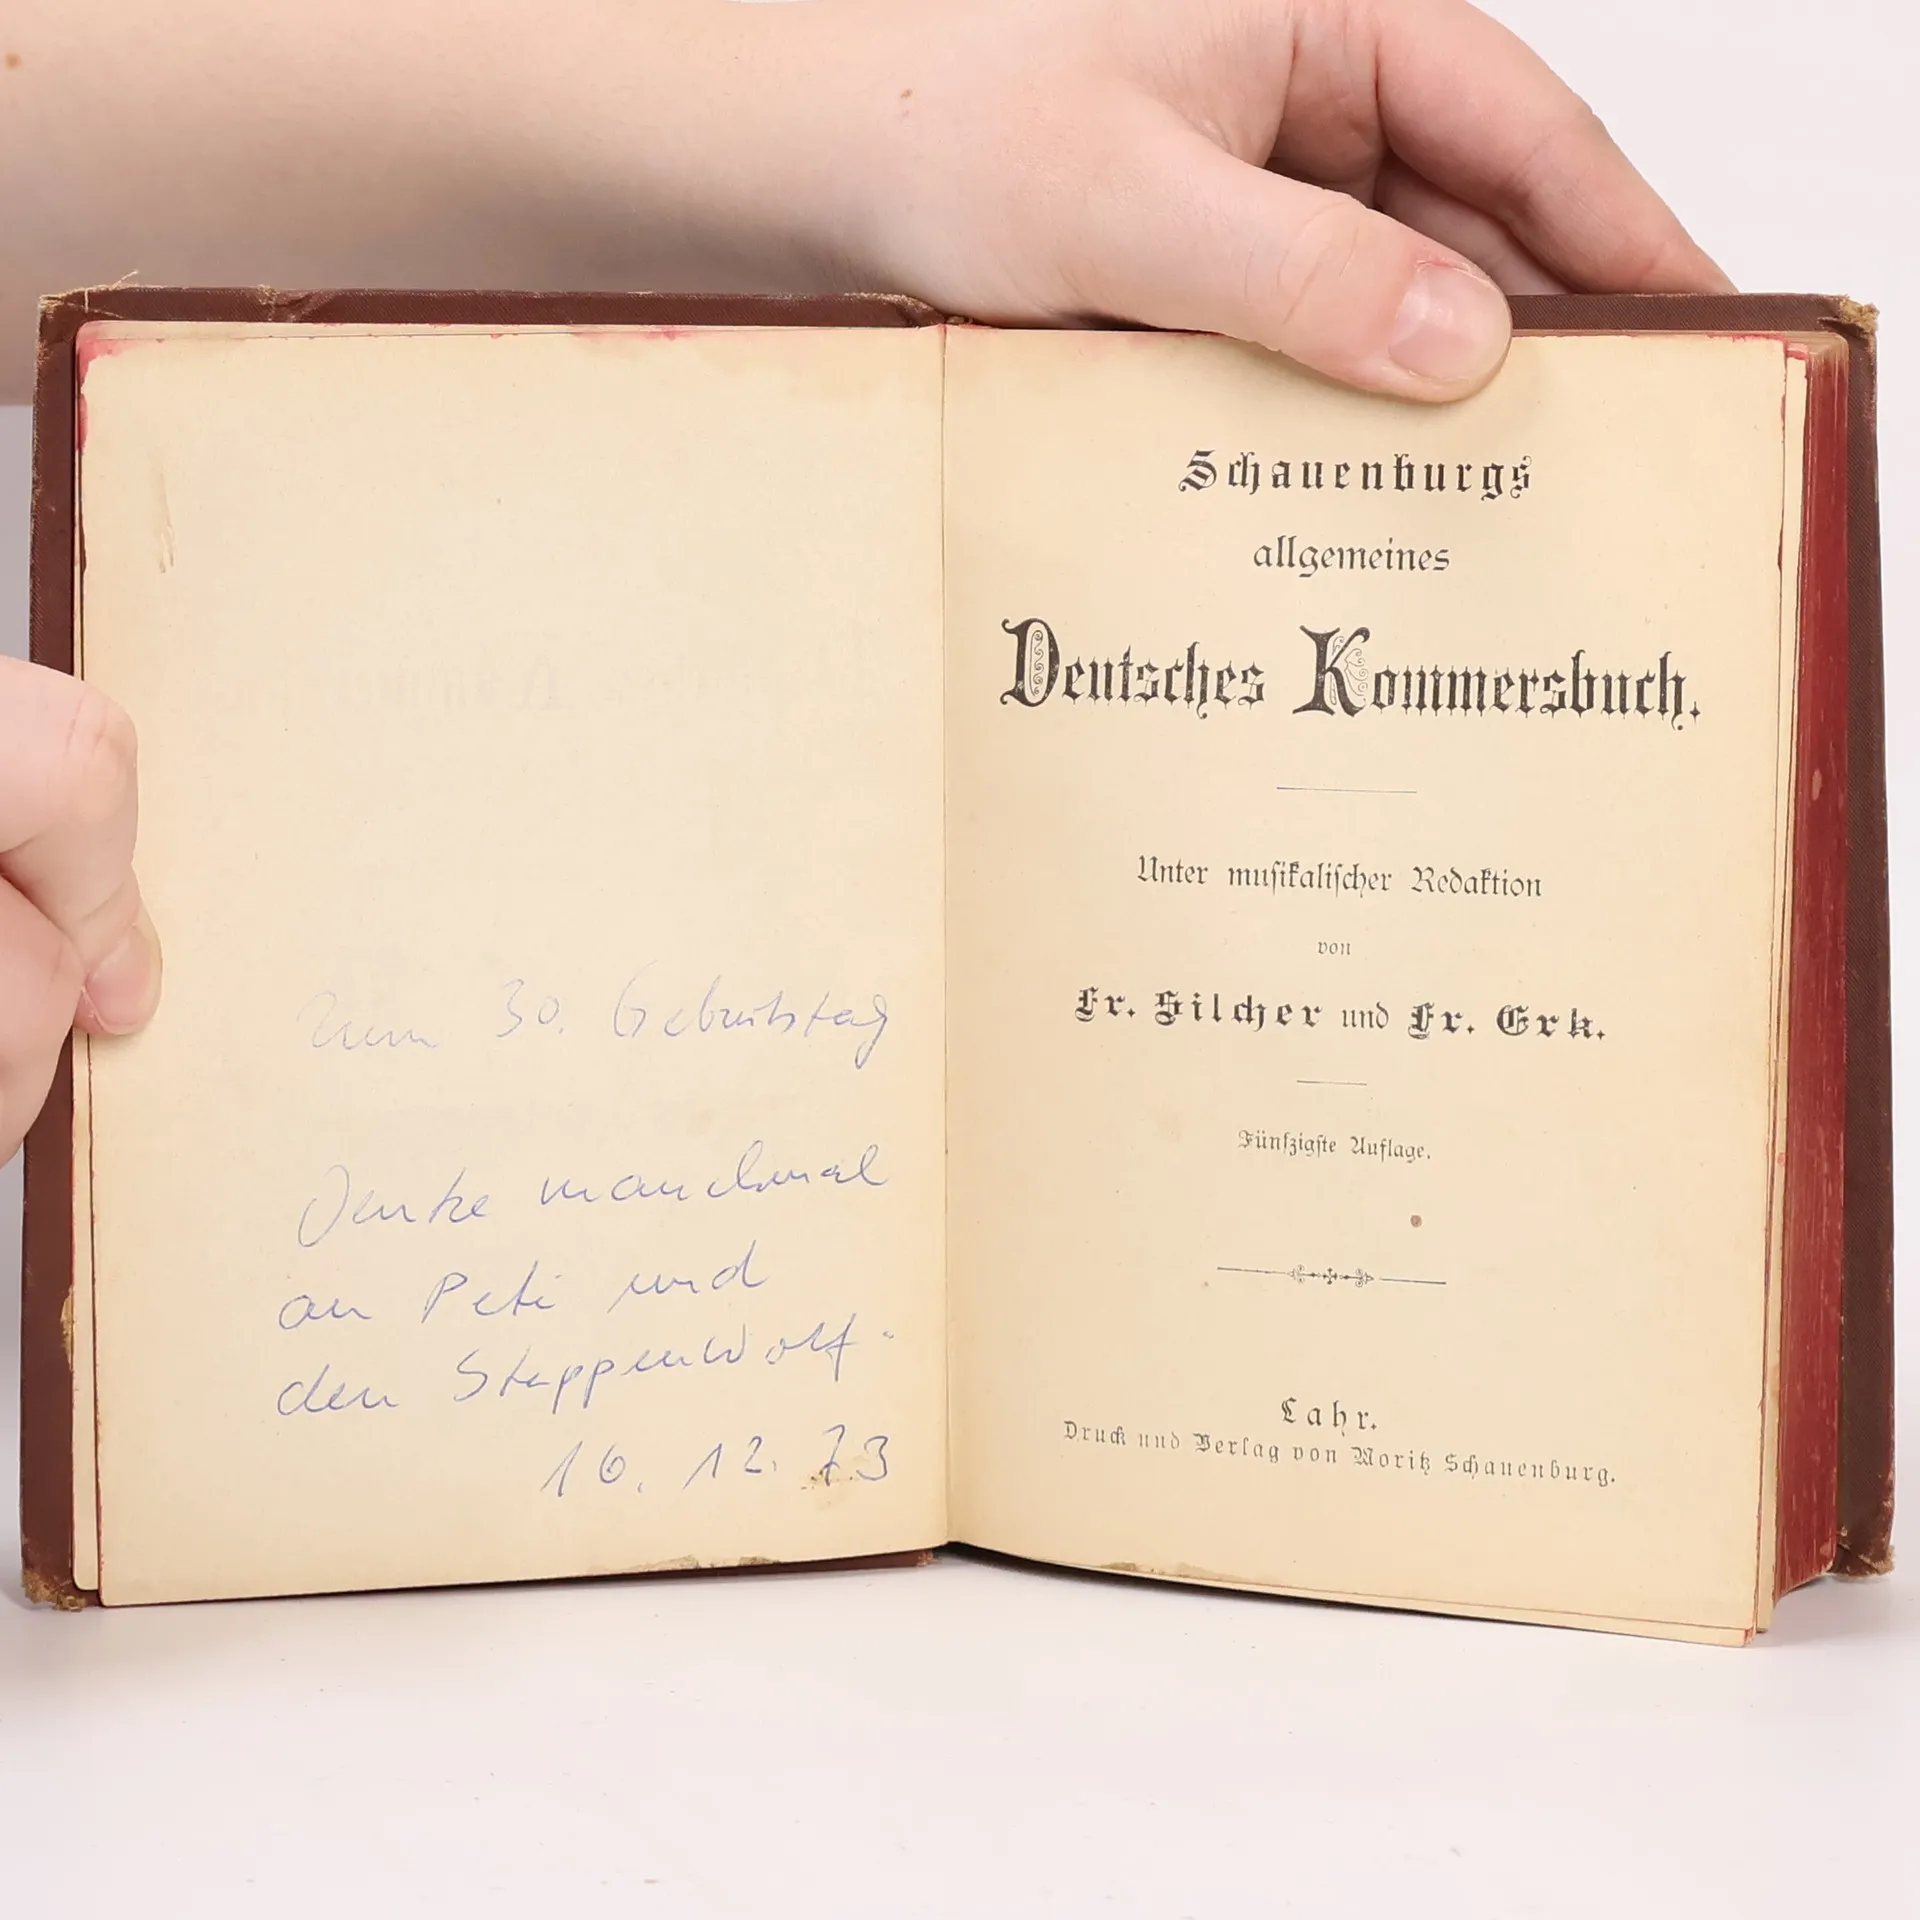 Zum 30. Geburtstag
Denke manchmal
an Peti und
den Steppenwolf.
16. 12. 73
Schauenburgs
allgemeines
Deutsches Kommersbuch.
Unter musikalischer Redaktion
von
Fr. Silcher und Fr. Erk.
Fünfzigste Auflage.
Lahr.
Druck und Verlag von Moritz Schauenburg.